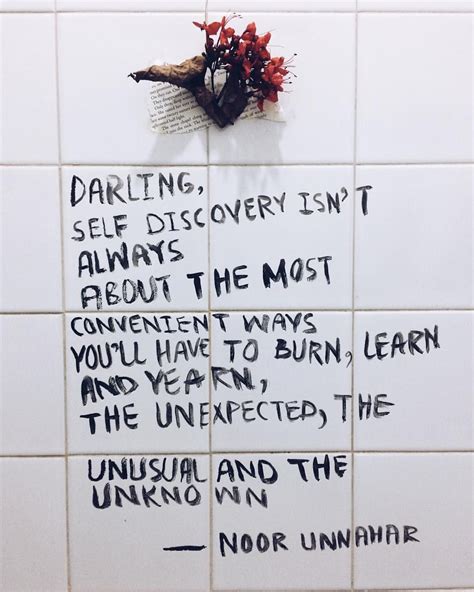 DARLING,
SELF DISCOVERY ISN'T
ALWAYS
ABOUT THE MOST
CONVENIENT WAYS
YOU'LL HAVE TO BURN, LEARN
AND YEARN,
THE UNEXPECTED, THE
UNUSUAL AND THE
UNKNOWN
— NOOR UNNAHAR